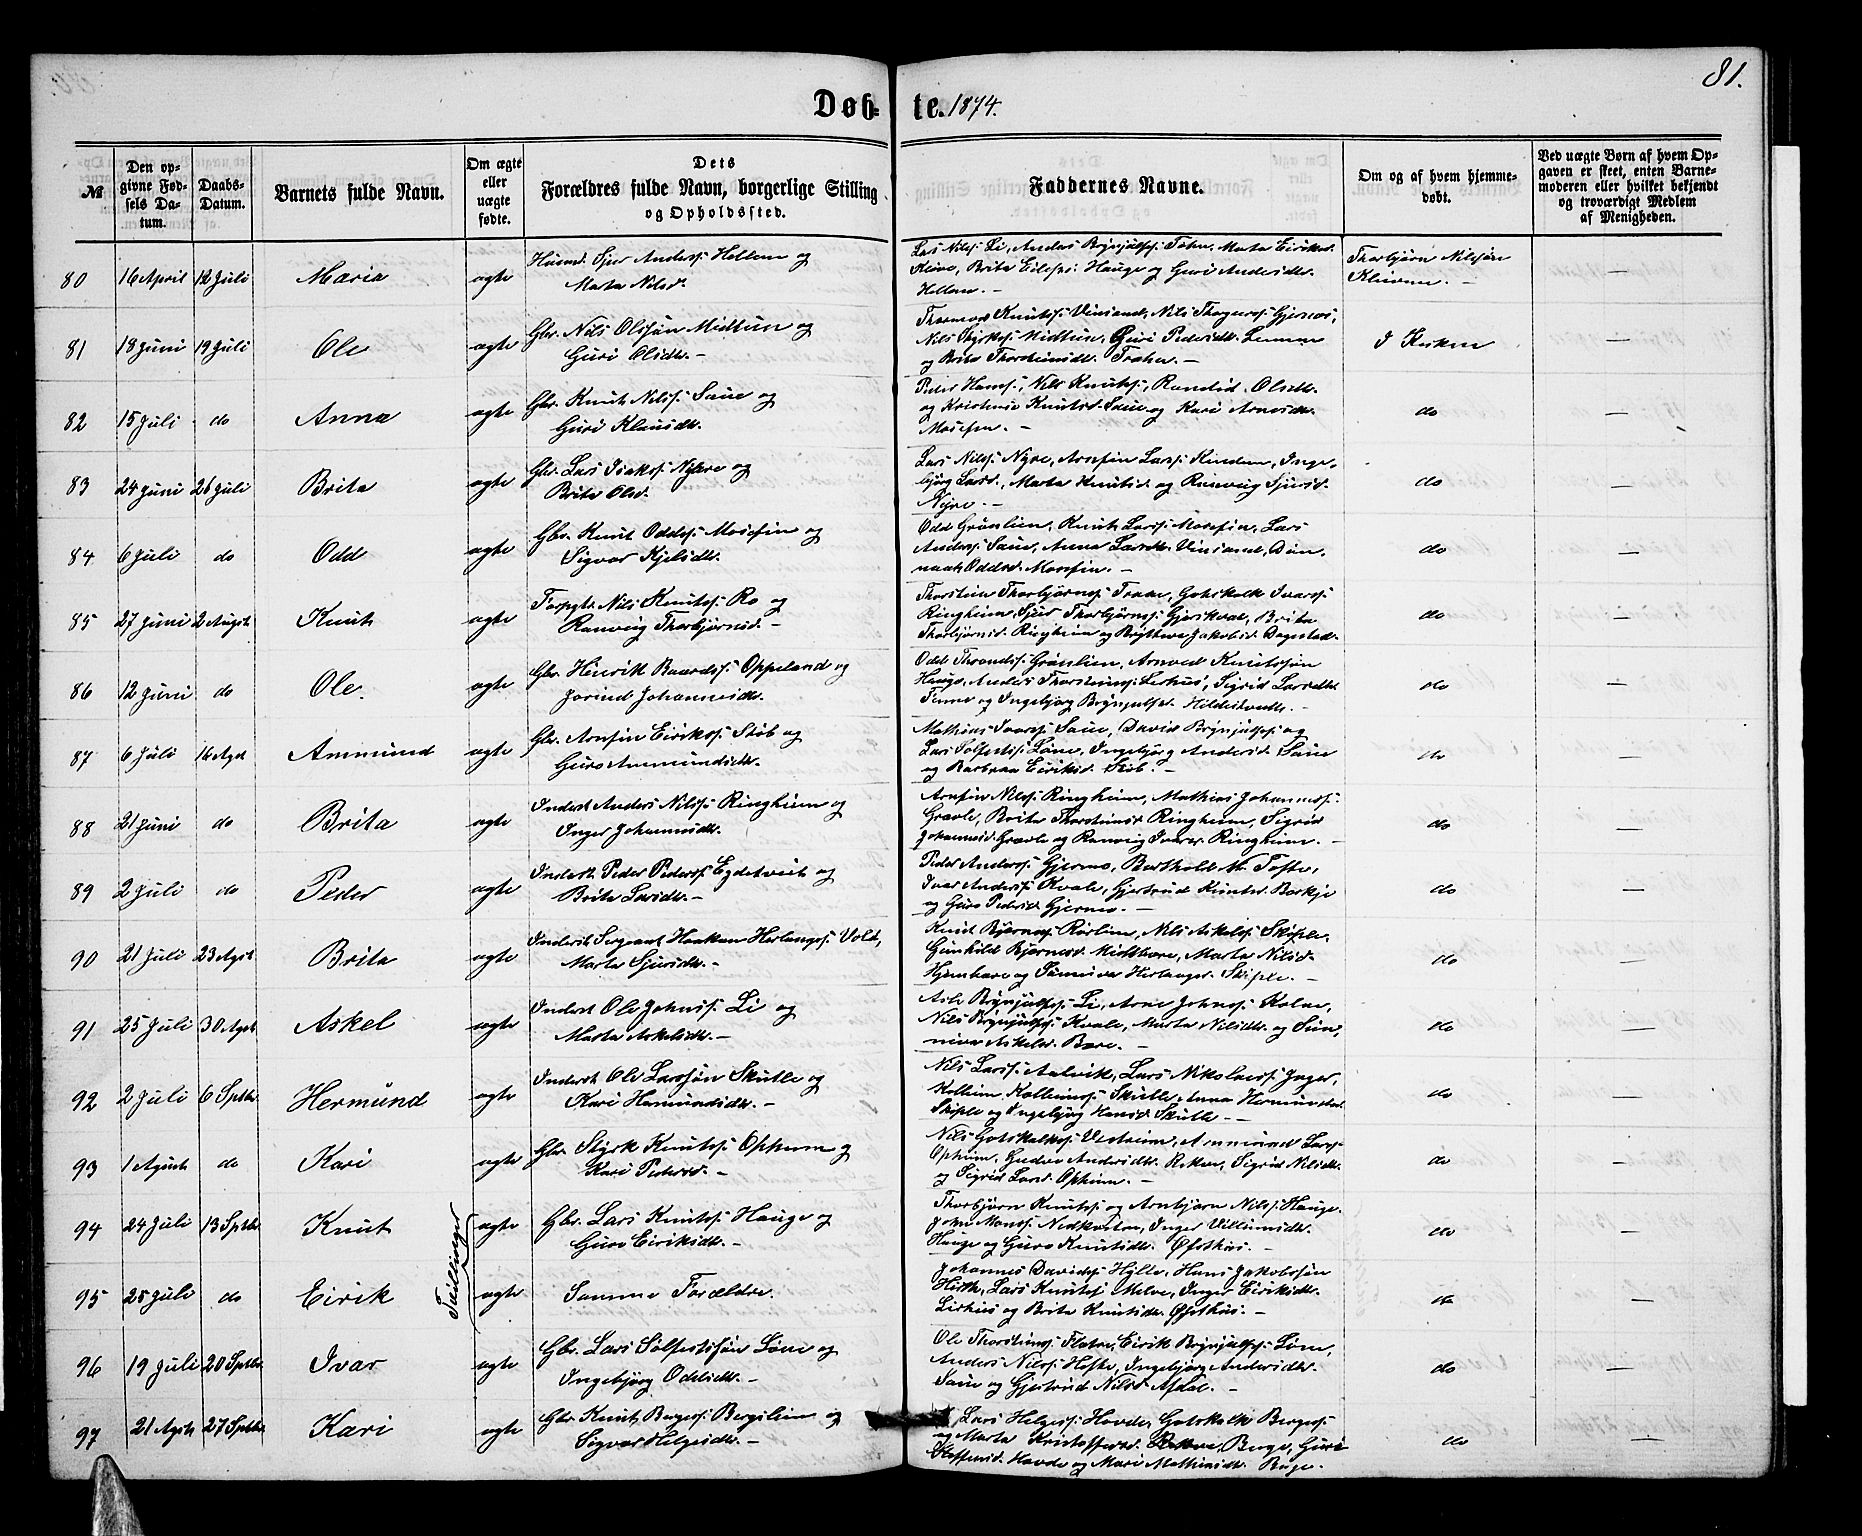 81.
Døb- te. 1874.
№
Den op-
givne Fød-
sels Da-
tum.
Daabs-
Datum.
Barnets fulde Navn.
Om ægte
eller
uægte
fødte.
Dets
Forældres fulde Navn, borgerlige Stilling
og Opholdssted.
Faddernes Navne.
Om og af hvem hjemme-
døbt.
Ved uægte Børn af hvem Op-
gaven er skeet, enten Barne-
moderen eller hvilket bekjendt
og troværdigt Medlem
af Menigheden.
80 16 April 12 Juli Maria ægte
Husmd. Sjur Anderss: Hellene og
Marta Nilsd.
Lars Nilss: Li, Anders Brynjulfss: Tøhn, Marta Eiriksd.
Kleive, Brita Eilefs: Hauge og Guri Andersdtr.
Hellene. —
Thorbjørn Nilssøn
Klieven. —
—
81 18 Juni 19 Juli Ole ægte
Gbr. Nils Olssøn Midtun og
Guri Olsdtr. —
Thormod Knutss: Vinsand, Nils Thorgerss: Gjernes,
Nils Styrks: Midtun, Guri Pedersdtr. Lemme
og Brita Thorsteinsdtr. Træen. —
I Kirken
—
82 15 Juli do Anna ægte
Gbr. Knut Nilss: Saue og
Guri Klausdtr.
Peder Hanss:, Nils Knutss:, Randid Olsdtr.
og Kristense Knutsd. Saue og Kari Arnesdtr.
Mosefin. —
do
—
83 24 Juni 26 Juli Brita ægte
Gbr. Lars Isaks: Nyre og
Brita Olsd.
Lars Nilss: Nyre, Arnfin Larss: Rinden, Inge-
bjørg Larsd., Marta Knutsd. og Ranveig Sjursd.
Nyre. —
do
—
84 6 Juli do Odd ægte
Gbr. Knut Oddss: Mosefin og
Sigvor Kjelsdtr.
Odd Grønlien, Knut Larss: Mosefin, Lars
Anderss: Saue, Anna Larsdtr. Vinsand, Dom-
naat Oddsd. Mosefin. —
do
—
85 27 Juni 2 Augst Knut ægte
Forpgtr. Nils Knutss: Ro og
Ranveig Thorbjørnsd. —
Thorstein Thorbjørnss: Traae, Gotskalk Ivarss:
Ringheim, Sjur Thorbjørnss: Gjerskvøl, Brita
Thorbjørnsd. Ringheim og Brytteva Jakobsd. Dagestad.
do
—
86 12 Juni do Ole. ægte
Gbr. Henrik Baardss: Oppeland og
Jorind Johannesdtr.
Odd Throndss: Grønlien, Arnved Knutssøn
Hauge, Anders Thorsteinss: Lerhus, Sigrid Larsdtr.
Finne og Ingebjørg Brynjulfsd. Hildestvedt. —
do
—
87 6 Juli 16 Agst Ammund ægte
Gbr. Arnfin Eirikss: Støb og
Guro Ammundsdtr.
Mathias Ivarss: Saue, David Brynjulfss: og
Lars Sølfestss: Løne, Ingebjørg Andersd. Saue
og Barbraa Eiriksd. Støb. —
do
—
88 21 Juni do Brita ægte
Inderst Anders Nilss: Ringheim og
Inger Johannesdtr.
Arnfin Nilss: Ringheim, Mathias Johanness:
Gravle, Brita Thorsteinsd Ringheim, Sigrid
Johannesd. Gravle og Ranveig Ivarsd. Ringheim. —
do
—
89 2 Juli do Peder ægte
Inderst Peder Pederss: Egdetveit og
Brita Larsdtr. —
Peder Anderss: Gjerme, Barthold M. Tofte,
Ivar Anderss: Kvale, Gjertrud Knutsd. Børkje
og Guro Pedersd. Gjerme. —
do
—
90 21 Juli 23 Agst Brita ægte
Inderst Sergeant Haakon Herlaugss: Vold,
Marta Sjursdtr. —
Knut Bjørness: Rørlien, Nils Askelss: Skiple,
Gunhild Bjørnesd. Midtbøre, Marta Nilsd.
Hjembøre og Sunneva Herlaugsd. Skiple. —
do
—
91 25 Juli 30 Agst Askel ægte
Inderst Ole Johnss: Li og
Marta Askelsdtr. —
Asle Brynjulfss: Li, Arne Johnss: Kolve,
Nils Brynjulfss: Kvale, Marta Nilsdtr. og Sun-
neva Askelsd. Børe. —
do
—
92 2 Juli 6 Sptbr. Hermund ægte
Inderst Ole Larssøn Skutle og
Kari Hermundsdtr. —
Nils Larss: Aalvik, Lars Nikolaiss: Jøger,
Kolbein Kolbeinss: Skutle, Anna Hermundsd.
Skiple og Ingebjørg Hansd. Skutle. —
do
—
93 1 Agust do Kari ægte
Gbr. Styrk Knutss: Opheim og
Kari Pedersd. —
Nils Gotskalkss: Vestreim, Ammund Larss:
Opheim, Gudve Andersdtr. Rekve, Sigrid Nilsdtr.
og Sigrid Larsd. Opheim. —
do
—
Tvillinger
94 24 Juli 13 Sptbr. Knut ægte
Gbr. Lars Knutss: Hauge og
Guro Eiriksdtr. —
Thorbjørn Knutss: og Arnbjørn Nilss: Hauge.
John Monss: Nedkvitne, Inger Villumsdtr.
Hauge og Guro Knutsdtr. Øfsthus. —
do
—
95 25 Juli do Eirik ægte
Samme Forældre.
Johannes Davidss: Hylle, Hans Jakobssøn
Hirth, Lars Knutss: Melve, Inger Eiriksdtr.
Lirhus og Brita Knutsdtr. Øfsthus. —
do
—
96 19 Juli 20 Sptbr. Ivar ægte
Gbr. Lars Sølfestssøn Løne og
Ingebjørg Oddsdtr. —
Ole Thorsteinss: Flatre, Eirik Brynjulfss: Løne,
Anders Nilss: Hefte, Ingebjørg Andersdtr.
Saue og Gjertrud Nilsd. Afdal. —
do
—
97 21 Agst 27 Sptbr. Kari ægte
Gbr. Knut Børgess: Bergslien og
Sigvor Helgesdtr. —
Lars Helgess: Hovde, Gotskalk Børgess:
og Marta Kristoffersd. Rekve, Brge, Guri
Steffensd. Hovde og Mari Mathiasdtr. Brge. —
do
—